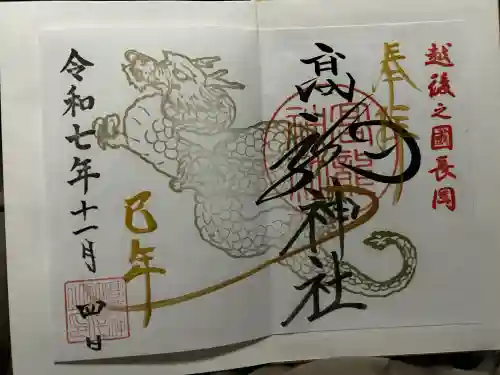 越後之國長岡
奉拝
高龍神社
巳年
令和七年十一月
四日